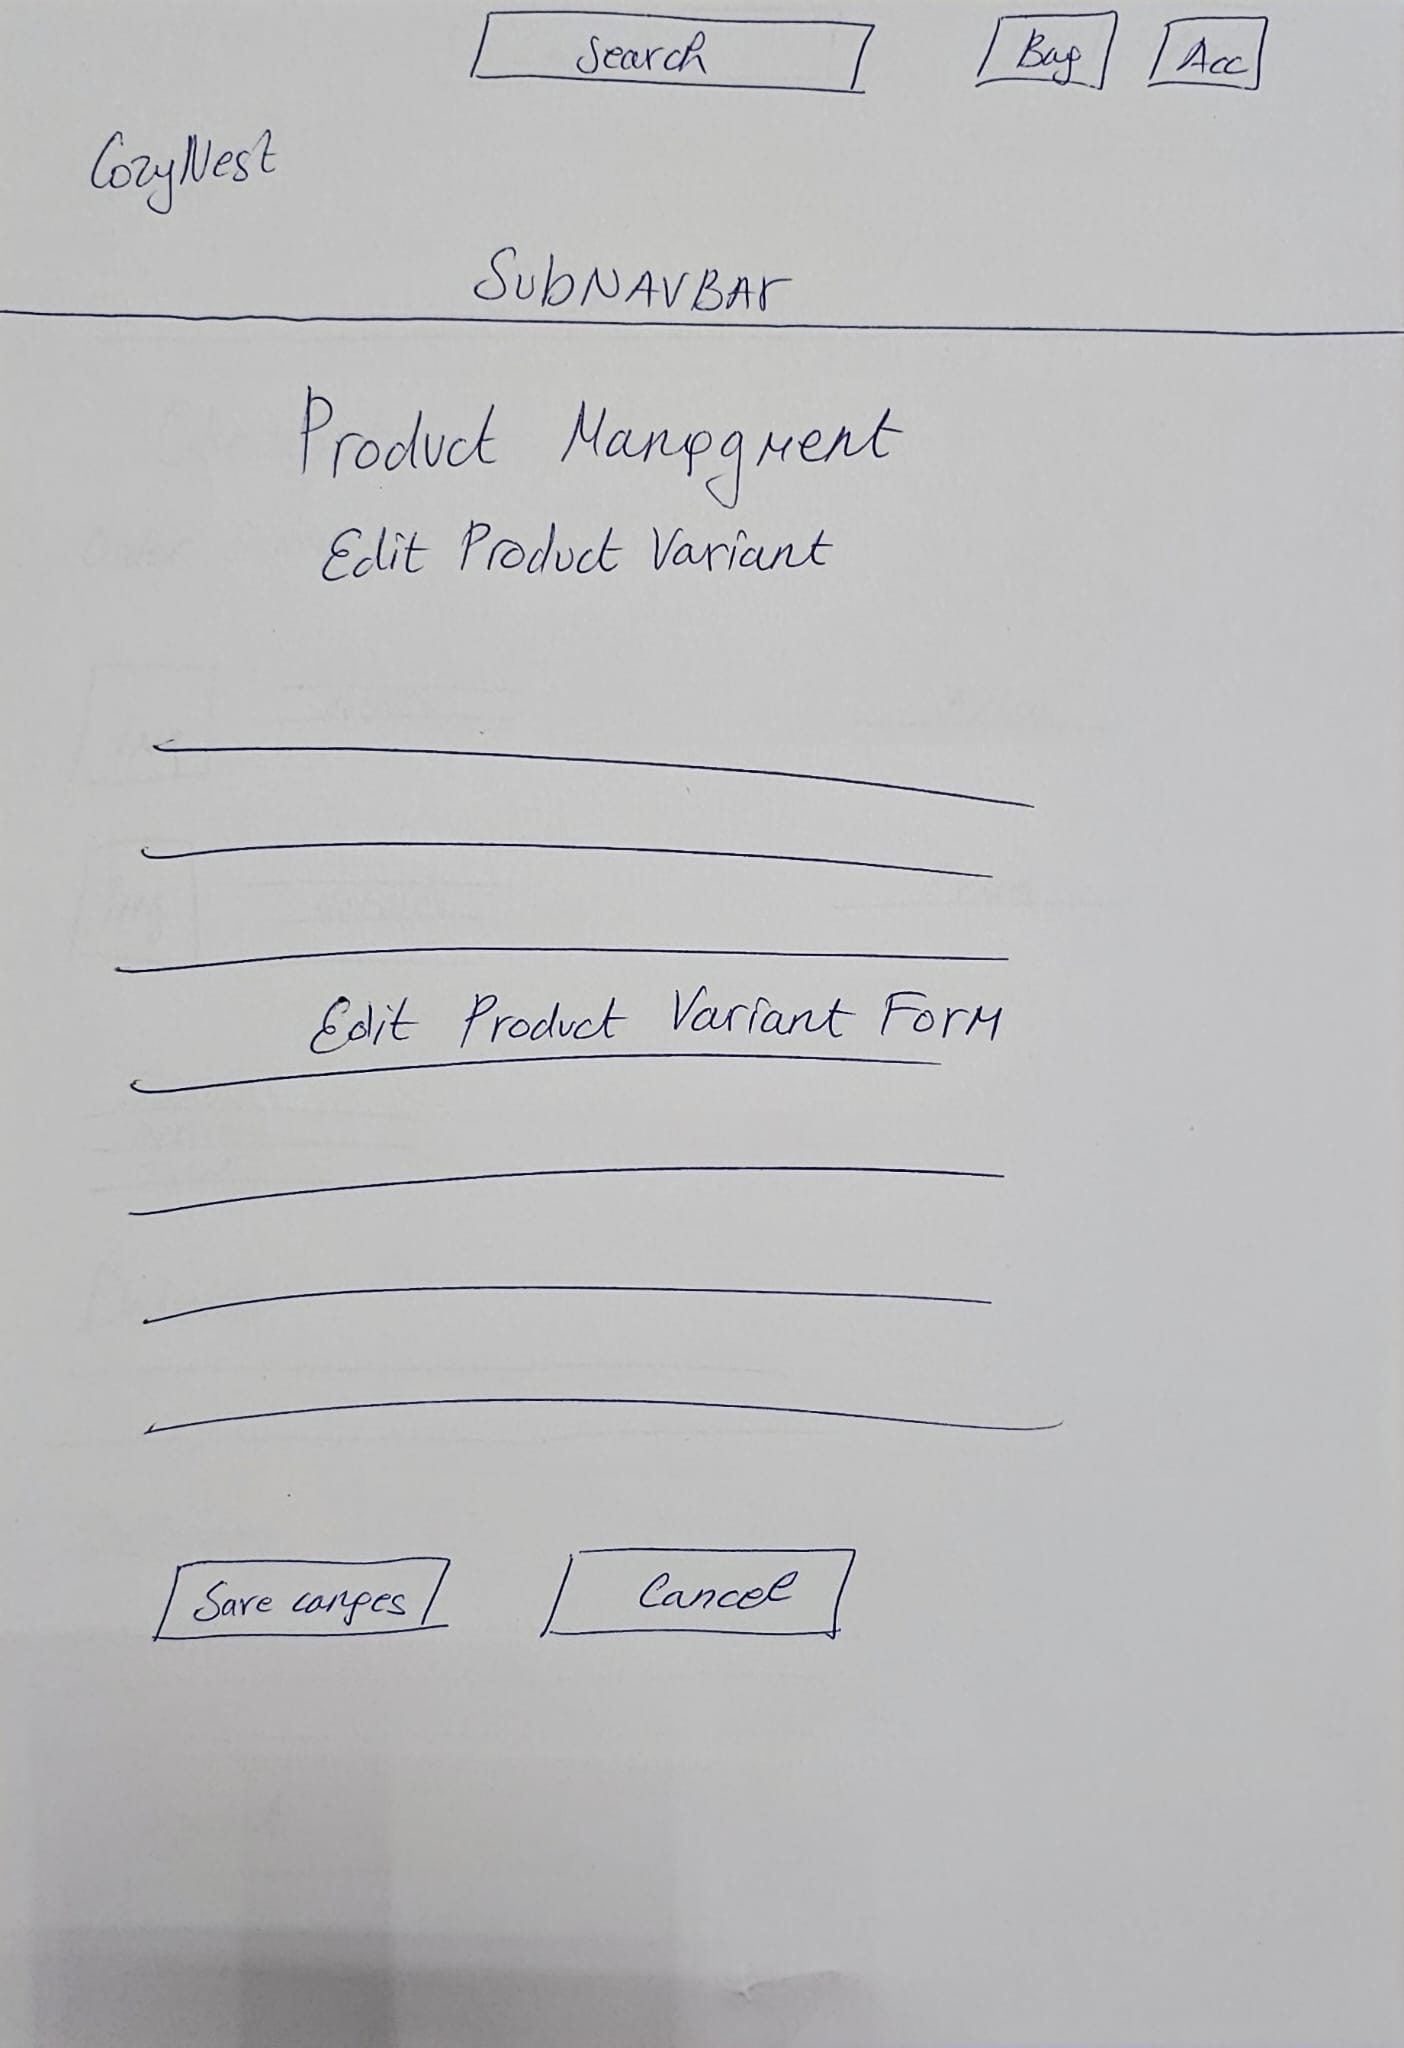 Search Bag Acc
CozyNest
SubNAVBAr
Product Managment
Edit Product Variant
Edit Product Variant Form
Save canges Cancel